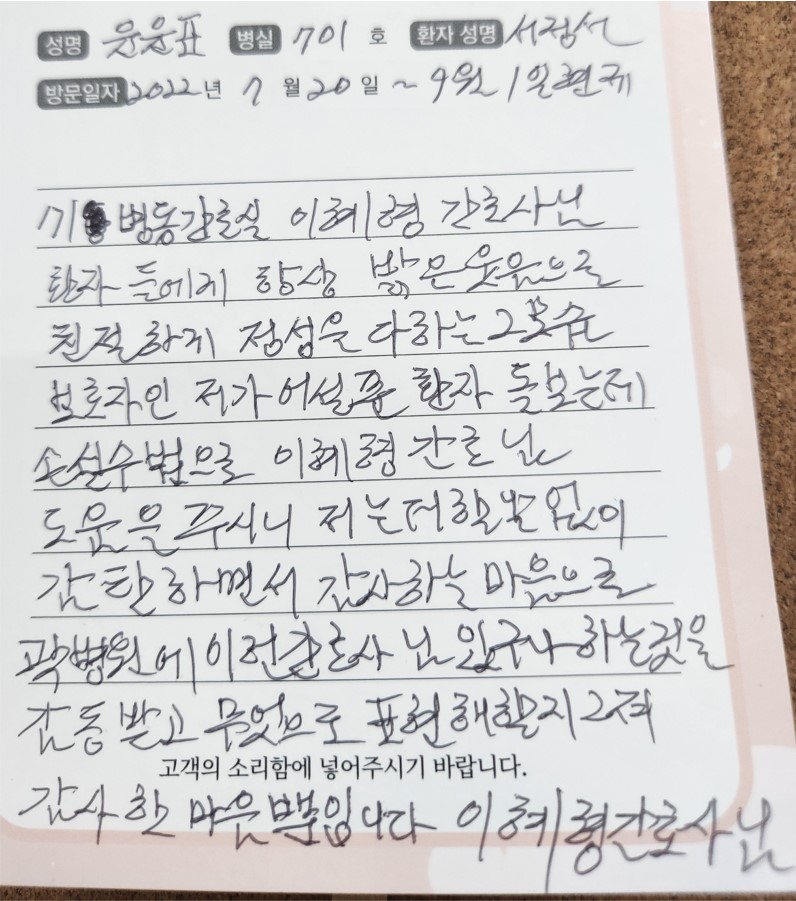 성명 윤윤표 병실 701 호 환자 성명 서점선
방문일자 2022년 7 월 20 일 ~ 9월 1일 현제
71 병동간호실 이혜형 간호사님
환자 들에게 항상 밝은 웃음으로
친절하게 정성을 다하는 그모습
보호자인 저가 어설푼 환자 돌보는데
손설수범으로 이혜형 간호 님
도움을 주시니 저는 더할말 없이
감탄하면서 감사하는 마음으로
곽병원에 이런 간호사 님 있구나 하는것을
감동 받고 무엇으로 표현해할지 그저
고객의 소리함에 넣어주시기 바랍니다.
감사 한 마음 뿐입니다 이혜형간호사님